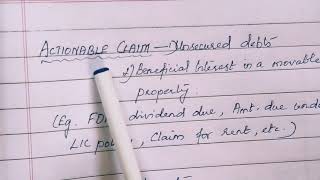 ACTIONABLE CLAIM — 1) Unsecured debts
2) Beneficial Interest in a movable
property.
(Eg. FDR, dividend due, Amt. due under
LIC policy, Claim for rent, etc.)